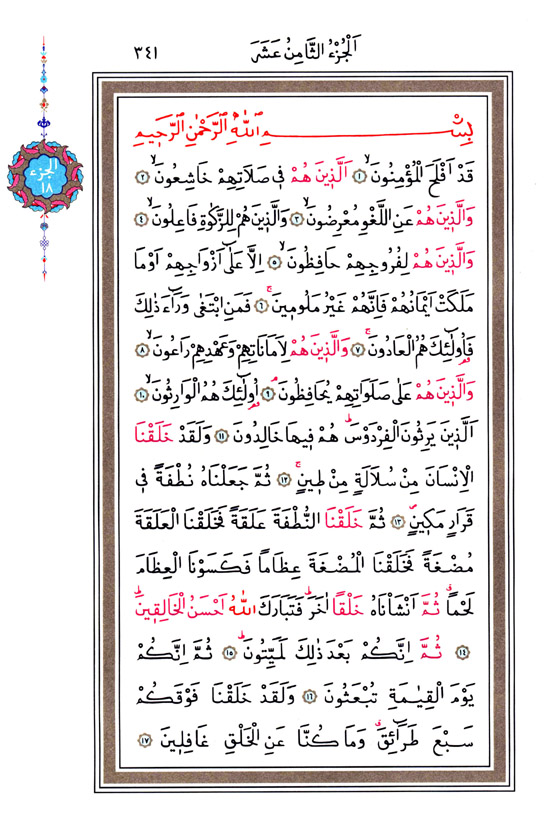 اَلْجُزْءُ الثَّامِنُ عَشَرَ ٣٤١
الجزء
١٨
بِسْمِ اللّٰهِ الرَّحْمٰنِ الرَّحِيمِ
قَدْ اَفْلَحَ الْمُؤْمِنُونَۙ ١ اَلَّذِينَ هُمْ فِي صَلَاتِهِمْ خَاشِعُونَۙ ٢
وَالَّذِينَ هُمْ عَنِ اللَّغْوِ مُعْرِضُونَۙ ٣ وَالَّذِينَ هُمْ لِلزَّكٰوةِ فَاعِلُونَۙ ٤
وَالَّذِينَ هُمْ لِفُرُوجِهِمْ حَافِظُونَۙ ٥ اِلَّا عَلٰٓى اَزْوَاجِهِمْ اَوْ مَا
مَلَكَتْ اَيْمَانُهُمْ فَاِنَّهُمْ غَيْرُ مَلُومِينَۚ ٦ فَمَنِ ابْتَغٰى وَرَٓاءَ ذٰلِكَ
فَاُو۬لٰٓئِكَ هُمُ الْعَادُونَۚ ٧ وَالَّذِينَ هُمْ لِاَمَانَاتِهِمْ وَعَهْدِهِمْ رَاعُونَۙ ٨
وَالَّذِينَ هُمْ عَلٰى صَلَوَاتِهِمْ يُحَافِظُونَۢ ٩ اُو۬لٰٓئِكَ هُمُ الْوَارِثُونَۙ ١٠
اَلَّذِينَ يَرِثُونَ الْفِرْدَوْسَۜ هُمْ فِيهَا خَالِدُونَ ١١ وَلَقَدْ خَلَقْنَا
الْاِنْسَانَ مِنْ سُلَالَةٍ مِنْ طِينٍۚ ١٢ ثُمَّ جَعَلْنَاهُ نُطْفَةً فِي
قَرَارٍ مَكِينٍۖ ١٣ ثُمَّ خَلَقْنَا النُّطْفَةَ عَلَقَةً فَخَلَقْنَا الْعَلَقَةَ
مُضْغَةً فَخَلَقْنَا الْمُضْغَةَ عِظَاماً فَكَسَوْنَا الْعِظَامَ
لَحْماًۗ ثُمَّ اَنْشَأْنَاهُ خَلْقاً اٰخَرَۜ فَتَبَارَكَ اللّٰهُ اَحْسَنُ الْخَالِقِينَۜ
١٤ ثُمَّ اِنَّكُمْ بَعْدَ ذٰلِكَ لَمَيِّتُونَۜ ١٥ ثُمَّ اِنَّكُمْ
يَوْمَ الْقِيٰمَةِ تُبْعَثُونَ ١٦ وَلَقَدْ خَلَقْنَا فَوْقَكُمْ
سَبْعَ طَرَٓائِقَۗ وَمَا كُنَّا عَنِ الْخَلْقِ غَافِلِينَ ١٧